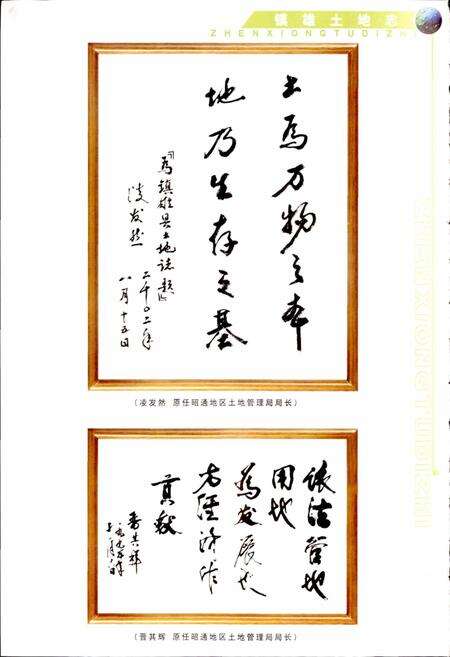 镇雄土地志
ZHENXIONGTUDIZHI
土为万物之本
地乃生存之基
为镇雄县土地志题
凌发然
二千〇二年
八月十五日
(凌发然 原任昭通地区土地管理局局长)
依法管地
用地
为发展地
方经济作
贡献
晋其辉
(晋其辉 原任昭通地区土地管理局局长)